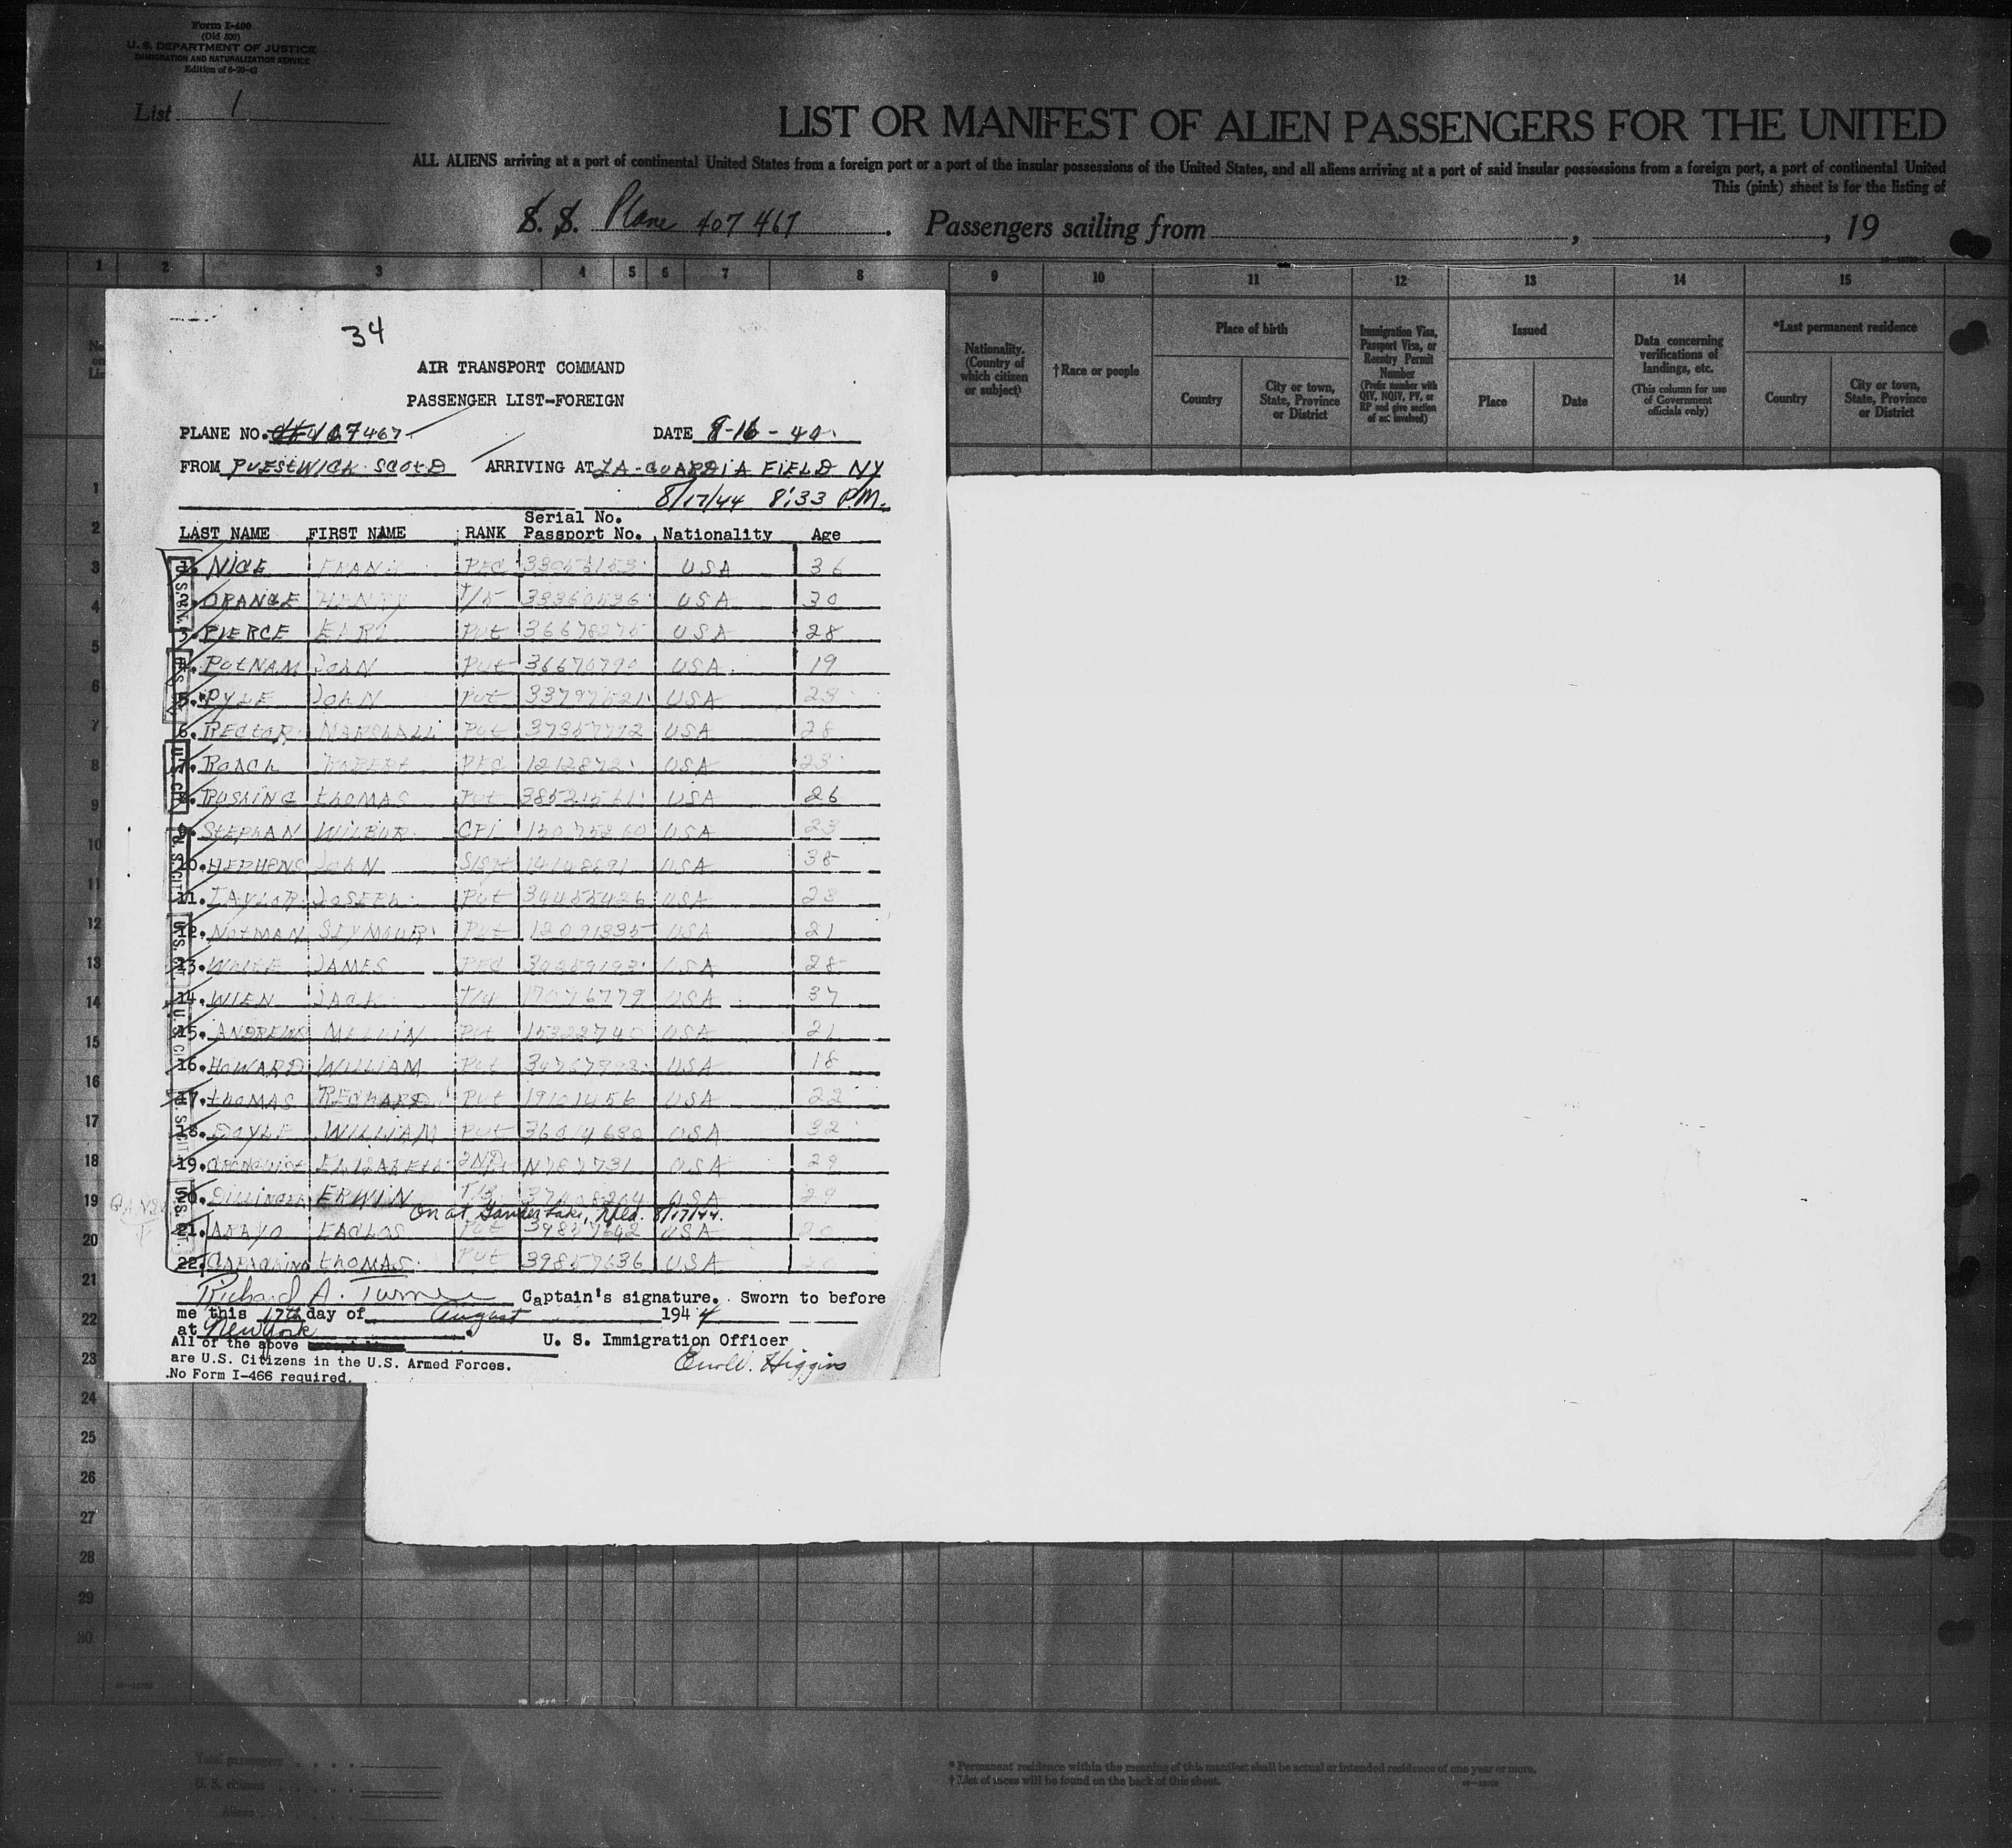 Form I-400
(Old 500)
U. S. DEPARTMENT OF JUSTICE
IMMIGRATION AND NATURALIZATION SERVICE
Edition of 6-20-42
List 1
LIST OR MANIFEST OF ALIEN PASSENGERS FOR THE UNITED
ALL ALIENS arriving at a port of continental United States from a foreign port or a port of the insular possessions of the United States, and all aliens arriving at a port of said insular possessions from a foreign port, a port of continental United
This (pink) sheet is for the listing of
S. S. Plane 407 467. Passengers sailing from , , 19
1 2 3 4 5 6 7 8 9 10 11 12 13 14 15
Nationality. (Country of which citizen or subject)
†Race or people
Place of birth
Country
City or town, State, Province or District
Immigration Visa, Passport Visa, or Reentry Permit Number
(Prefix number with QIV, NQIV, PV, or RP and give section of act involved)
Issued
Place
Date
Data concerning verifications of landings, etc.
(This column for use of Government officials only)
*Last permanent residence
Country
City or town, State, Province or District
34
AIR TRANSPORT COMMAND
PASSENGER LIST-FOREIGN
PLANE NO. 467 DATE 8-16-44
FROM PRESTWICK SCOTD ARRIVING AT LA-GUARDIA FIELD NY
8/17/44 8:33 P.M.
Serial No.
LAST NAME FIRST NAME RANK Passport No. Nationality Age
1. NICE FRANK PFC USA 36
2. ORANGE HENRY T/5 33360536 USA 30
3. PIERCE EARL Pvt USA 28
4. PUTNAM JOHN Pvt 36670790 USA 19
5. PYLE JOHN Pvt 33797521 USA 23
6. RECTOR MARSHALL Pvt 37357792 USA 28
7. ROACH ROBERT PFC 1212872 USA 23
8. RUSHING THOMAS Pvt 38521561 USA 26
9. STEPHAN WILBUR CPL 15075260 USA 23
10. JOHN S/Sgt 14148891 USA 38
11. TAYLOR JOSEPH Pvt 34455426 USA 28
12. NOTMAN SEYMOUR Pvt 12091335 USA 21
13. WHITE JAMES PFC 34259193 USA 28
14. WIEN JACK T/4 17076779 USA 37
15. ANDREWS MELVIN Pvt 15322740 USA 21
16. HOWARD WILLIAM Pvt USA 18
17. THOMAS RECHARD Pvt 19101456 USA 22
18. DOYLE WILLIAM Pvt 36014680 USA 32
19. ELIZABETH 2ND N787731 USA 29
20. DILLINGER ERWIN 37408264 USA 29
On at Gander Lake, Nfld. 8/17/44.
21. ARAYO Pvt 39857642 USA 20
22. THOMAS Pvt 39857636 USA
Richard A. Turner Captain's signature. Sworn to before
me this 17th day of August 1944
at New York.
All of the above U. S. Immigration Officer
are U.S. Citizens in the U.S. Armed Forces. Higgins
No Form I-466 required.
1
2
3
4
5
6
7
8
9
10
11
12
13
14
15
16
17
18
19
20
21
22
23
24
25
26
27
28
29
30
Total passengers
U. S. citizens
Aliens
* Permanent residence within the meaning of this manifest shall be actual or intended residence of one year or more.
† List of races will be found on the back of this sheet.